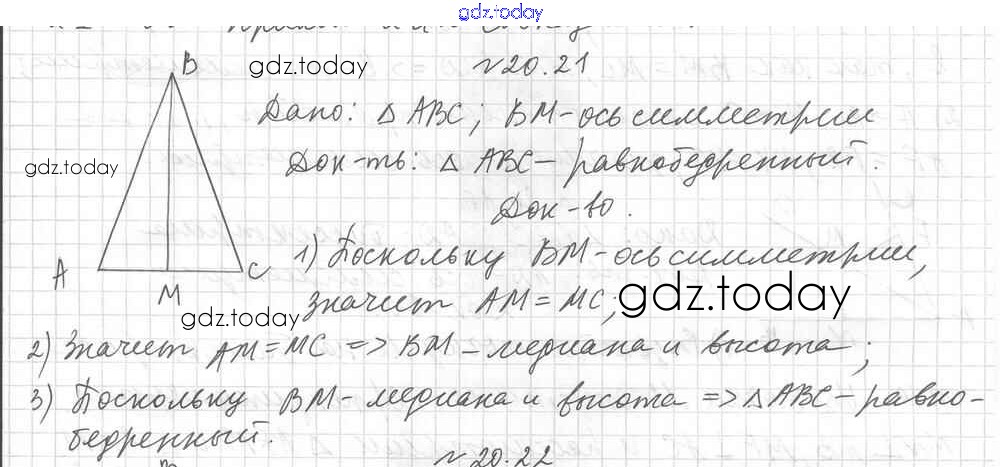 gdz.today
№20.21
B
gdz.today
Дано: △ ABC; BM-ось симметрии
gdz.today
Док-ть: △ ABC - равнобедренный.
Док-во.
1) Поскольку BM-ось симметрии,
A
C
M
значит AM = MC;
gdz.today
gdz.today
2) Значит AM = MC => BM - медиана и высота;
3) Поскольку BM - медиана и высота => △ ABC - равно-
бедренный.
№20.22